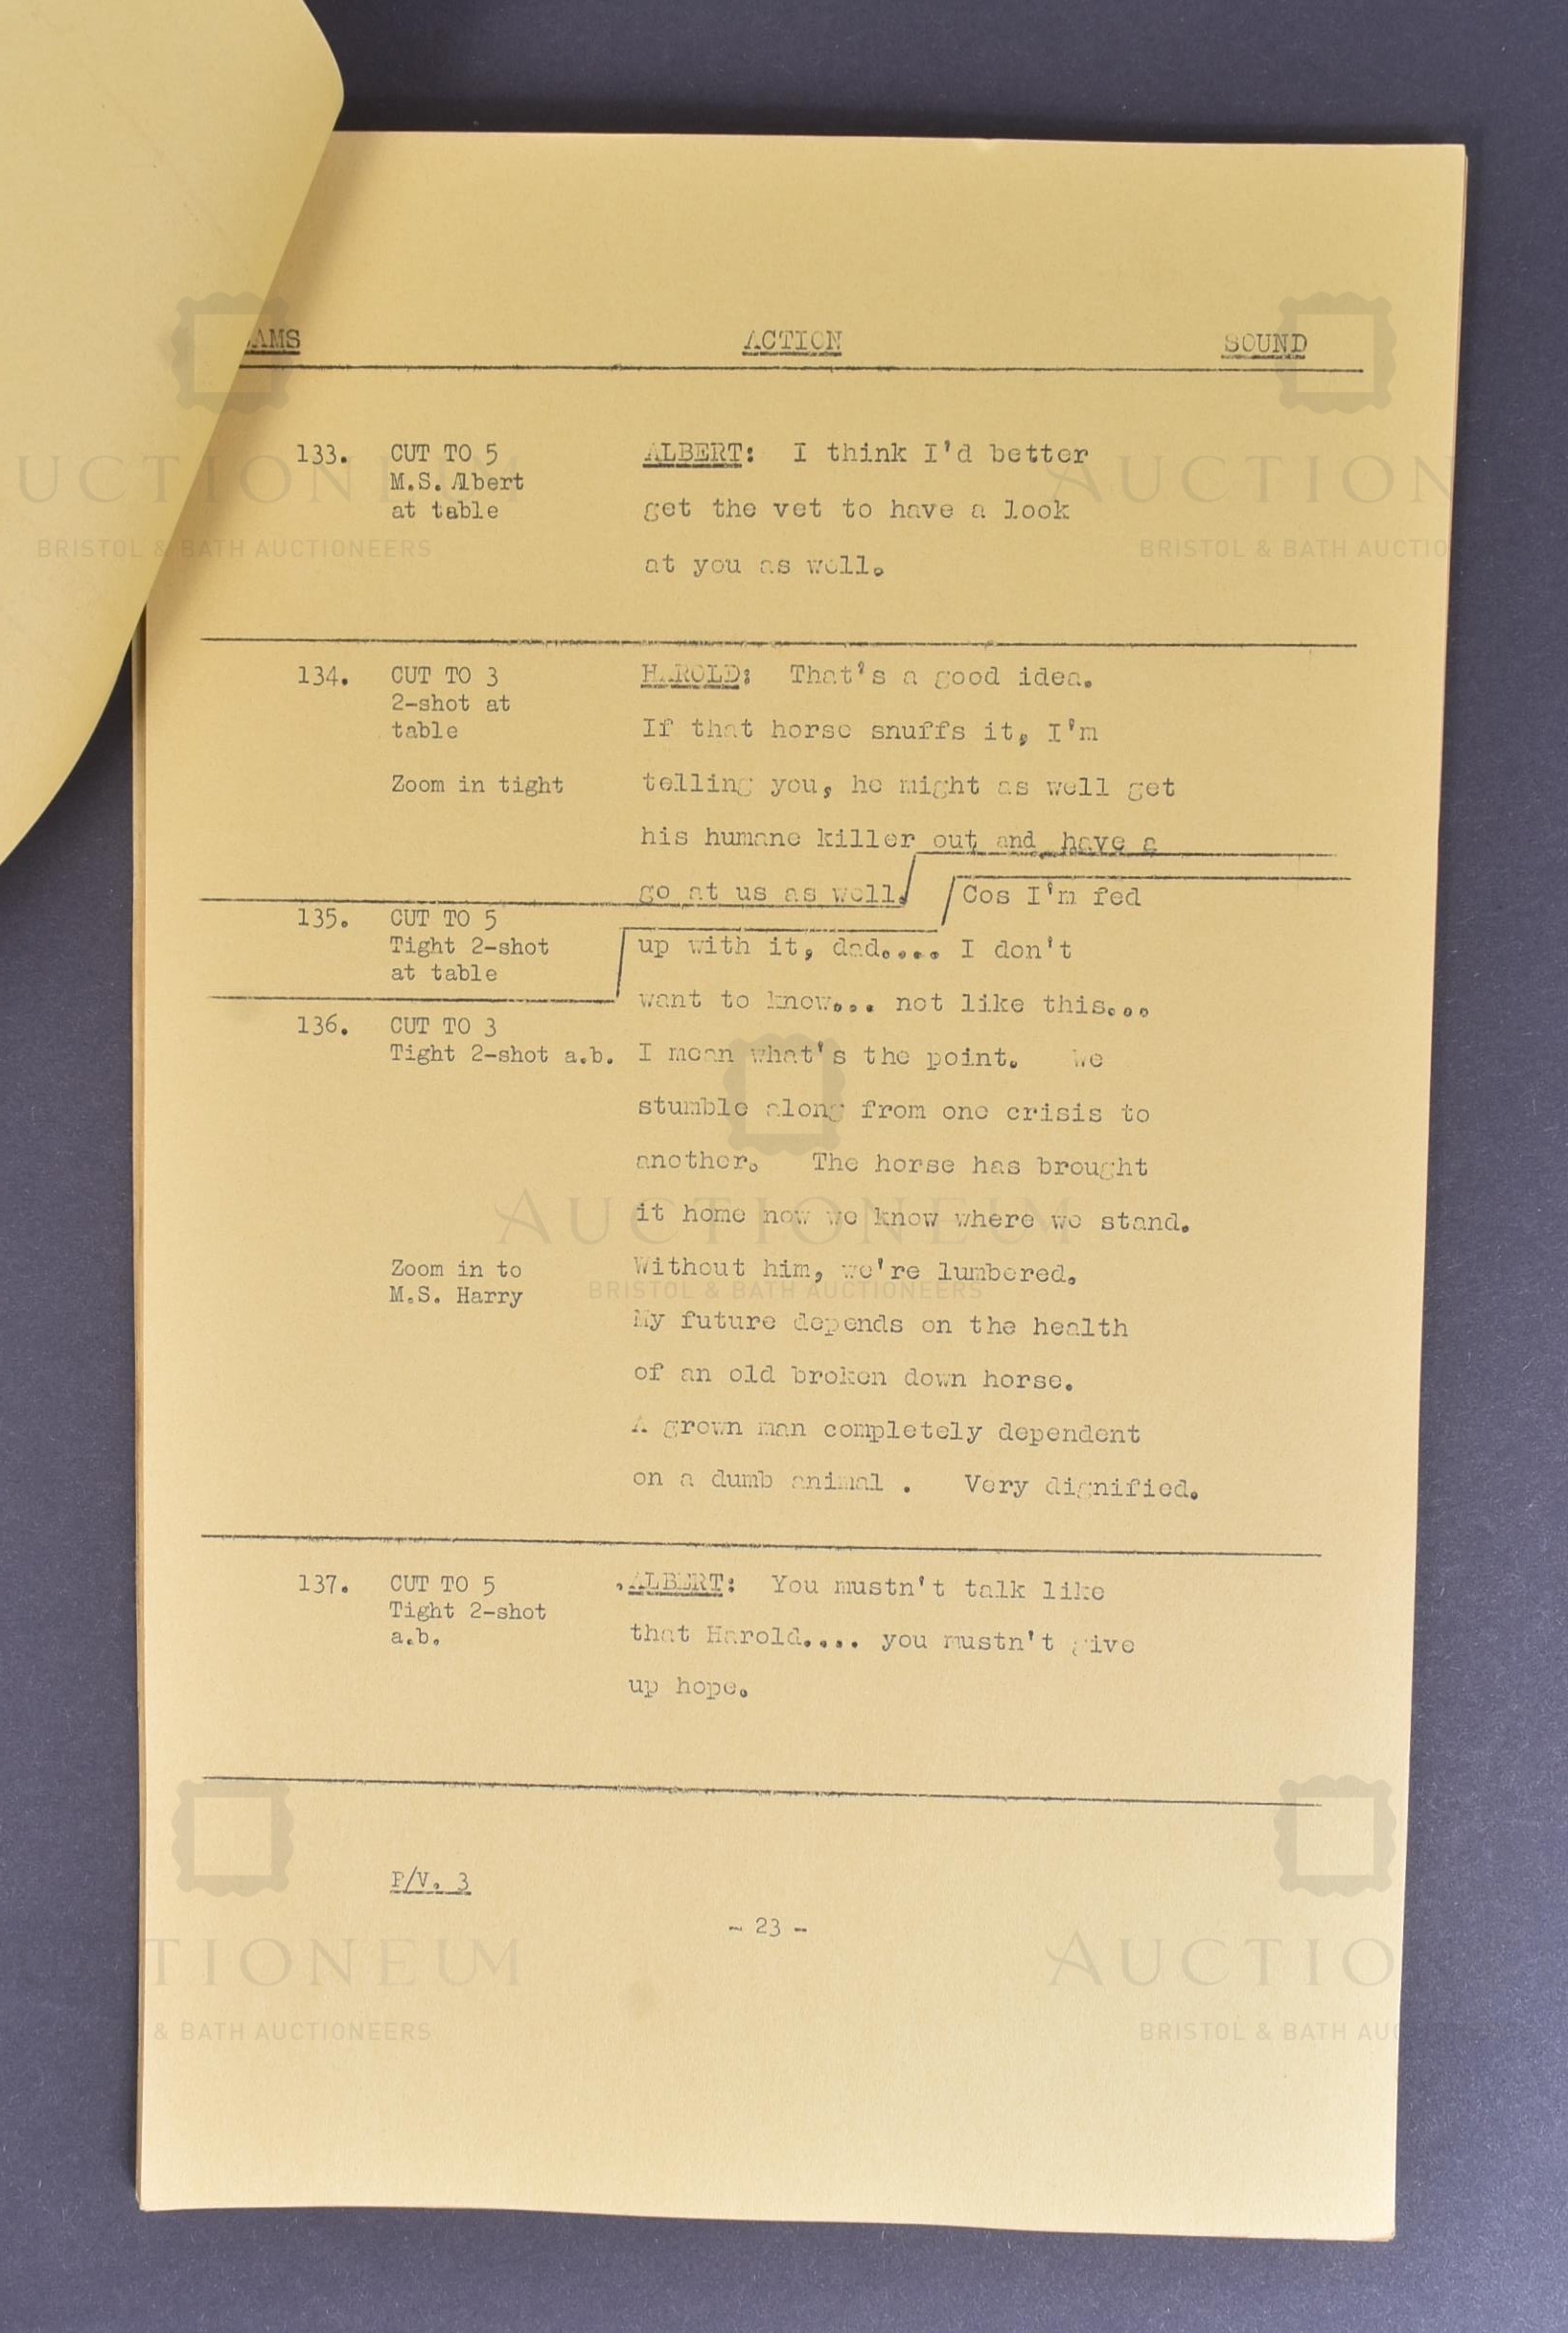 AMS ACTION SOUND
133. CUT TO 5 ALBERT: I think I'd better
M.S. Albert
at table get the vet to have a look
at you as well.
134. CUT TO 3 HAROLD: That's a good idea.
2-shot at
table If that horse snuffs it, I'm
Zoom in tight telling you, he might as well get
his humane killer out and have a
go at us as well. Cos I'm fed
135. CUT TO 5
Tight 2-shot up with it, dad.... I don't
at table
want to know... not like this...
136. CUT TO 3
Tight 2-shot a.b. I mean what's the point. We
stumble along from one crisis to
another. The horse has brought
it home now we know where we stand.
Zoom in to Without him, we're lumbered.
M.S. Harry
My future depends on the health
of an old broken down horse.
A grown man completely dependent
on a dumb animal . Very dignified.
137. CUT TO 5 ALBERT: You mustn't talk like
Tight 2-shot
a.b. that Harold.... you mustn't give
up hope.
P/V. 3
- 23 -
UCTIONEUM
BRISTOL & BATH AUCTIONEERS
AUCTION
BRISTOL & BATH AUCTIO
AUCTIONEUM
BRISTOL & BATH AUCTIONEERS
TIONEUM
& BATH AUCTIONEERS
AUCTIO
BRISTOL & BATH AUC